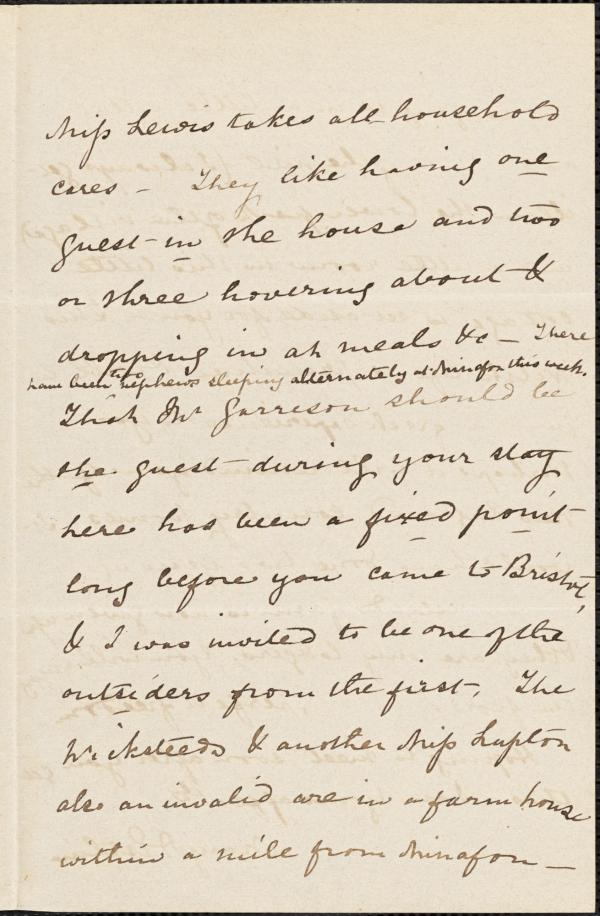 Miss Lewis takes all household
cares - They like having one
guest in the house and two
or three hovering about &
dropping in at meals &c - There
have been two nephews sleeping alternately at Minafon this week.
That Mr Garreson should be
the guest during your stay
here has been a fixed point
long before you came to Bristol,
& I was invited to be one of the
outsiders from the first. The
Wicksteeds & another Miss Lupton
also an invalid are in a farm house
within a mile from Minafon -